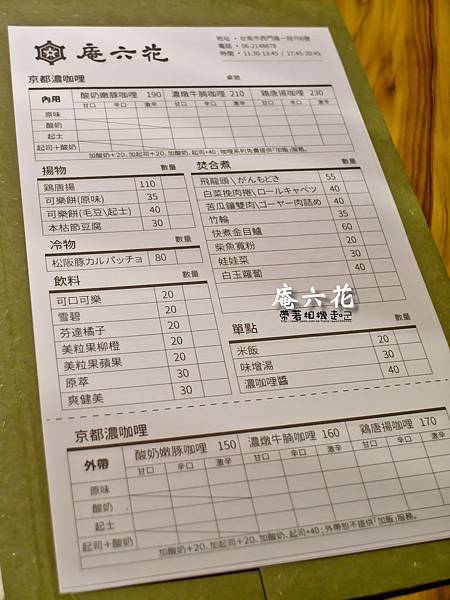 庵六花
地址・台南市西門路一段700號
電話・06-2148878
時間・11:30-13:45 / 17:45-20:45
京都濃咖哩
桌號
內用
酸奶嫩豚咖哩 190 濃燉牛腩咖哩 210 鶏唐揚咖哩 230
甘口 辛口 激辛 甘口 辛口 激辛 甘口 辛口 激辛
原味
酸奶
起士
起司+酸奶
加酸奶+20、加起司+20、加酸奶、起司+40;咖哩系列免費提供「加飯」服務。
揚物 數量
鶏唐揚 110
可樂餅(原味) 35
可樂餅(毛豆\起士) 40
本枯節豆腐 30
冷物 數量
松阪豚カルパッチョ 80
飲料 數量
可口可樂 20
雪碧 20
芬達橘子 20
美粒果柳橙 20
美粒果蘋果 20
原萃 30
爽健美 30
焚合煮 數量
飛龍頭\がんもどき 55
白菜挽肉捲\ロールキャベツ 40
苦瓜鑲雙肉\ゴーヤー肉詰め 40
竹輪 35
快煮金目鱸 60
柴魚寬粉 20
娃娃菜 30
白玉蘿蔔 40
庵六花
帶著相機走吧
單點 數量
米飯 20
味增湯 30
濃咖哩醬 40
京都濃咖哩
外帶
酸奶嫩豚咖哩 150 濃燉牛腩咖哩 160 鶏唐揚咖哩 170
甘口 辛口 激辛 甘口 辛口 激辛 甘口 辛口 激辛
原味
酸奶
起士
起司+酸奶
加酸奶+20、加起司+20、加酸奶、起司+40;外帶恕不提供「加飯」服務。